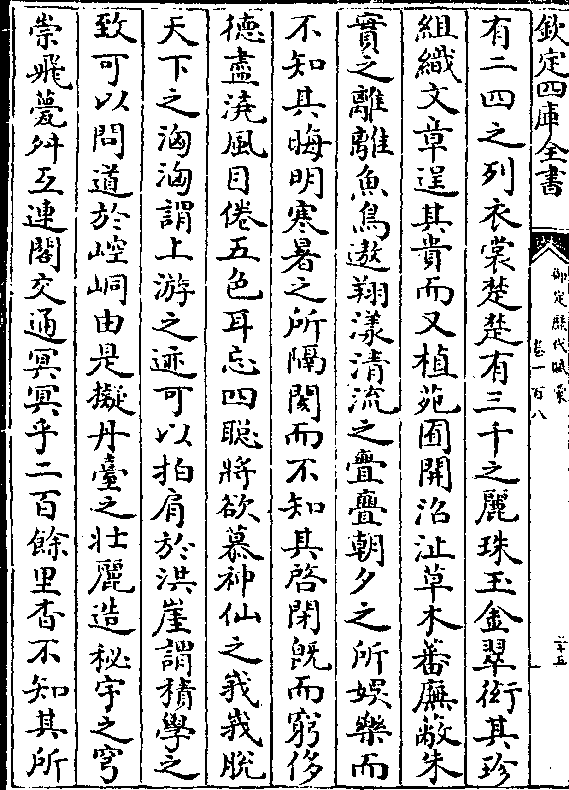 欽定四庫全書
御定歷代賦彙
卷一百八
二十五
有二四之列衣裳楚楚有三千之麗珠玉金翠衒其珍
組織文章逞其貴而又植苑囿開沼沚草木蕃廡蔽朱
實之離離魚鳥遨翔漾清流之疊疊朝夕之所娛樂而
不知其晦明寒暑之所隔閡而不知其啓閉旣而窮侈
徳盡澆風目倦五色耳忘四聰將欲慕神仙之峩峩脫
天下之洶洶謂上游之迹可以拍肩於洪崖謂積學之
致可以問道於崆峒由是擬丹臺之壯麗造秘宇之穹
崇飛甍舛互連閣交通冥冥乎二百餘里杳不知其所